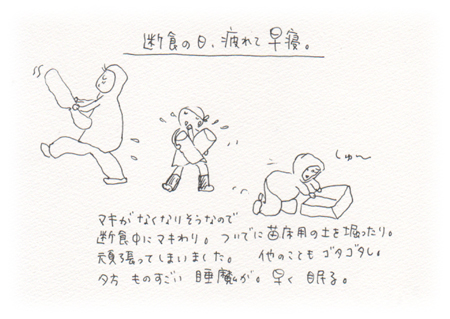 断食の日、疲れて早寝。
しゅ〜
マキがなくなりそうなので
断食中にマキわり。ついでに苗床用の土を堀ったり。
頑張ってしまいました。 他のこともゴタゴタし。
夕方 ものすごい 睡魔が。早く 眠る。